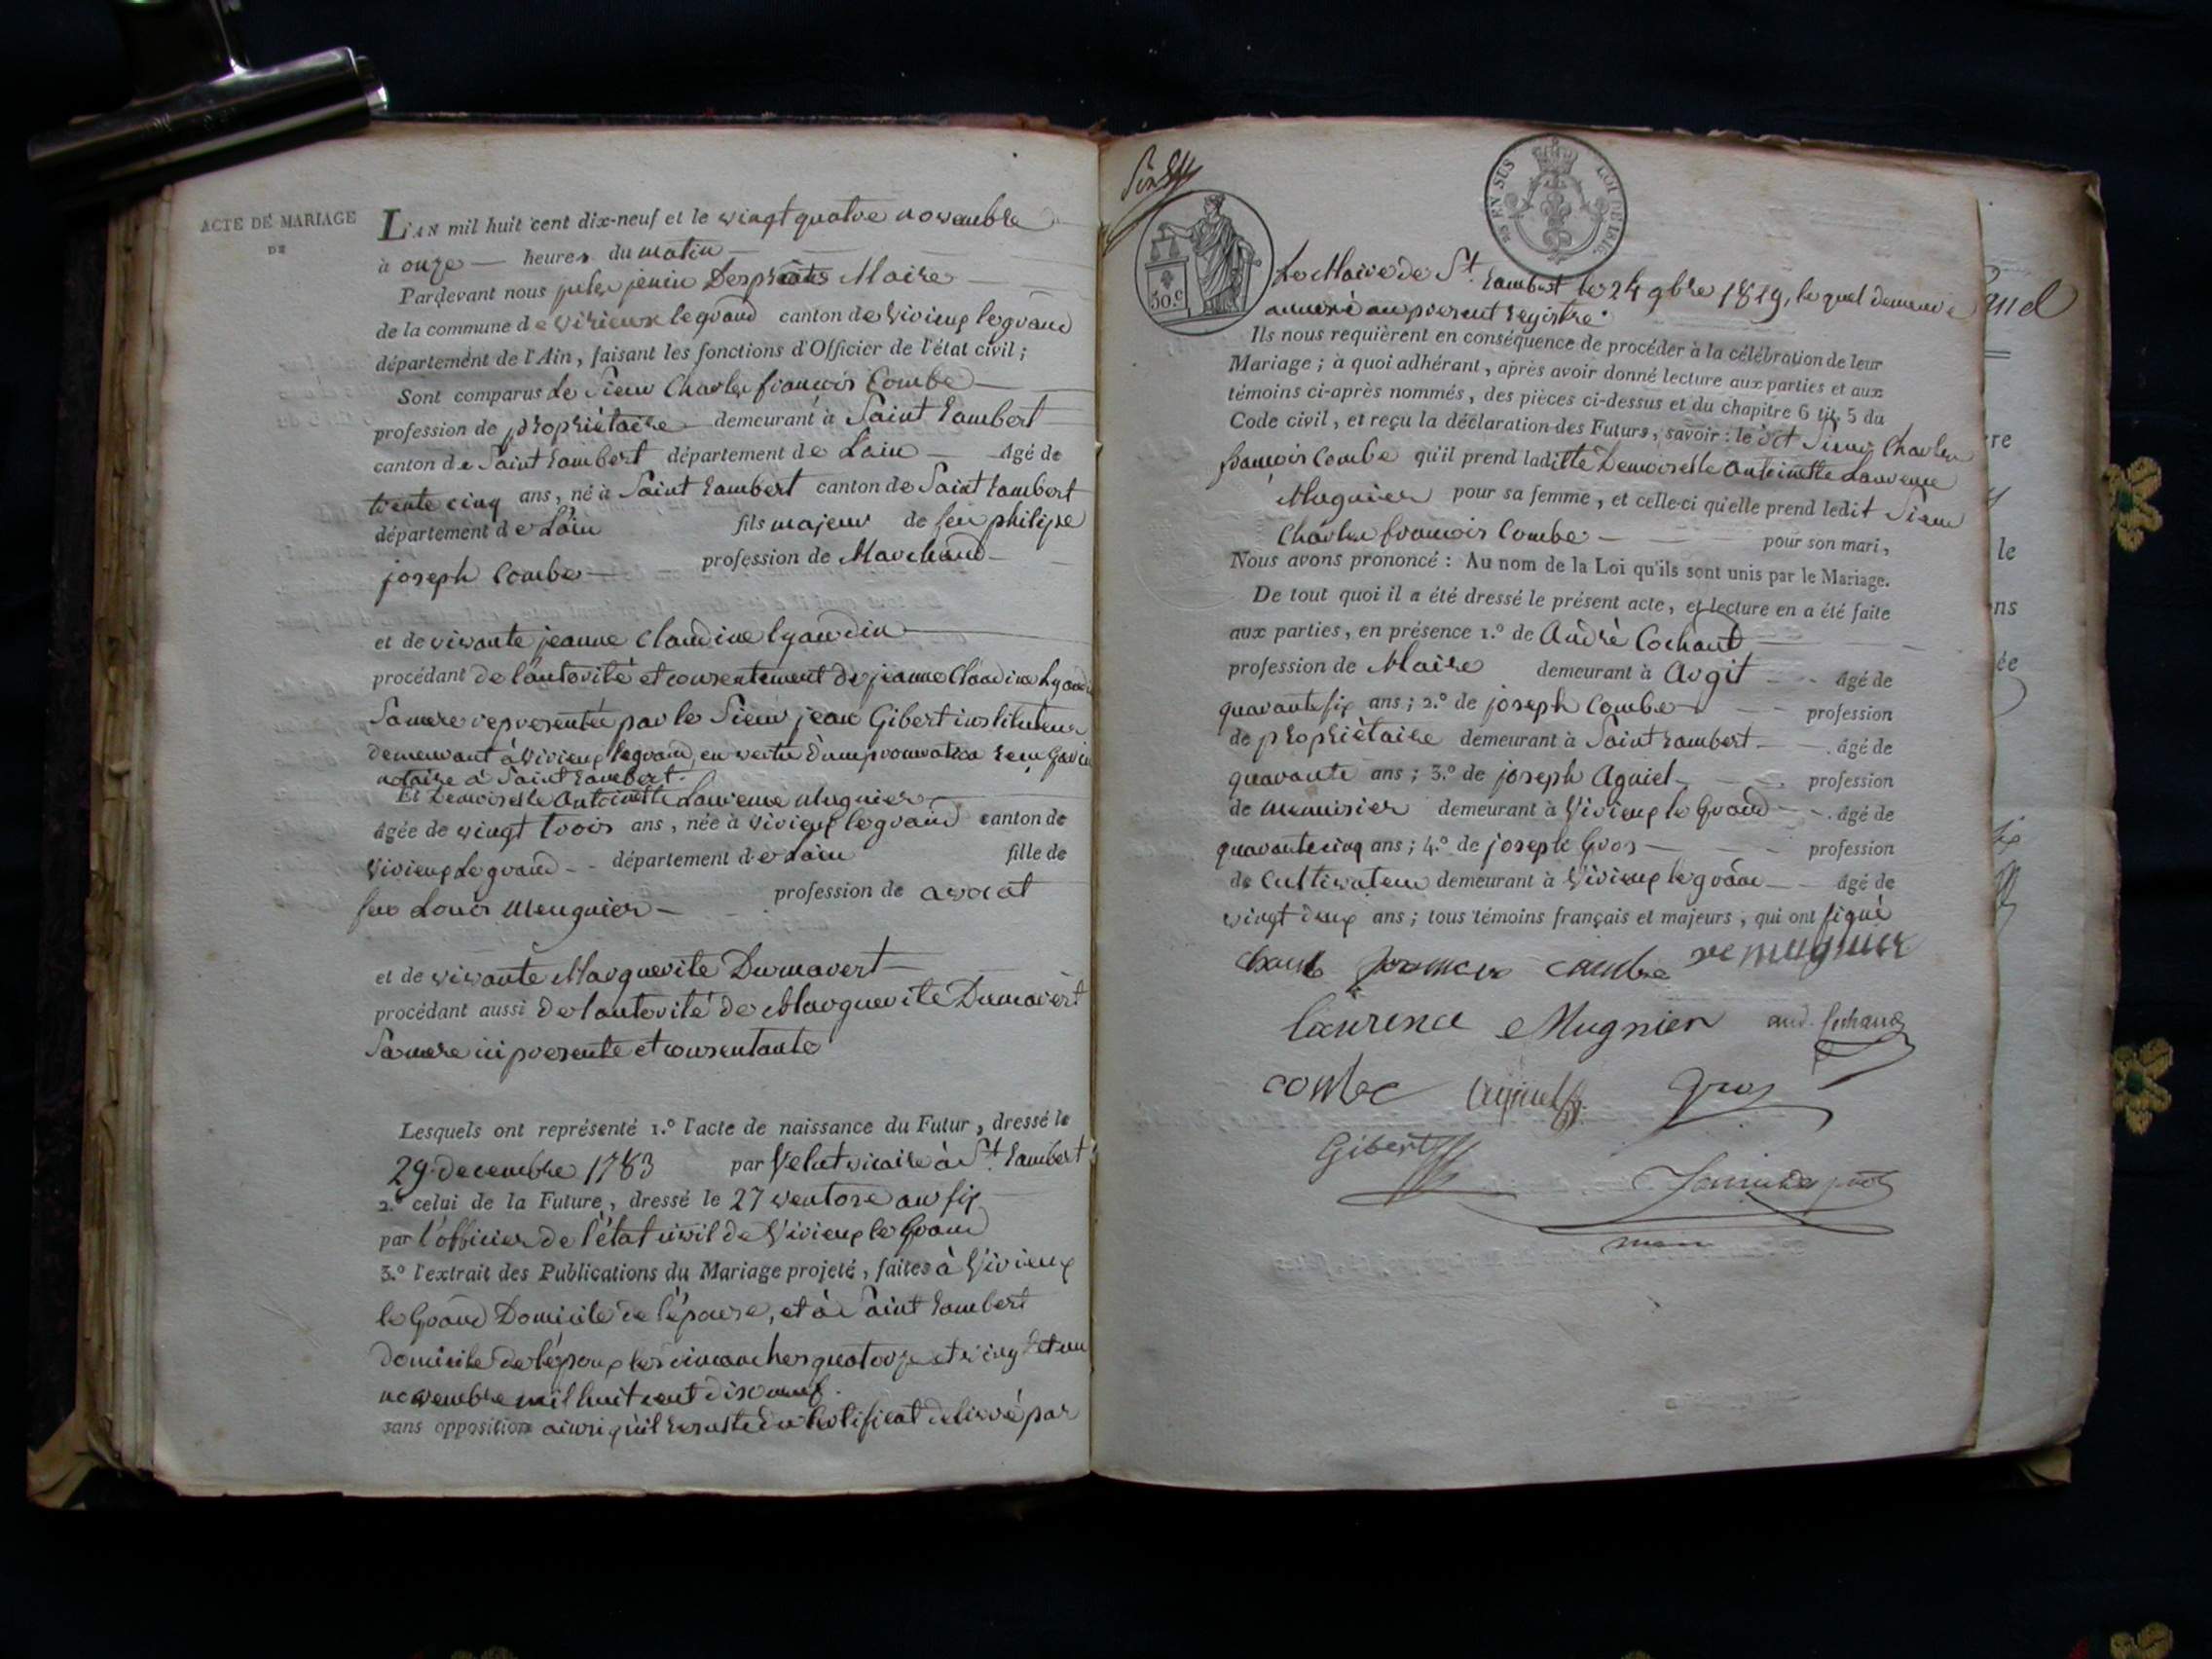 ACTE DE MARIAGE
DE
L'AN mil huit cent dix-neuf et le vingt quatre novembre
à onze heures du matin
Pardevant nous jules jenin Maire
de la commune de Virieux legrand canton de Virieux legrand
département de l'Ain, faisant les fonctions d'Officier de l'état civil ;
Sont comparus Le Sieur Charles françois Combe
profession de propriétaire demeurant à Saint Rambert
canton de Saint Rambert département de Lain Agé de
trente cinq ans, né à Saint Rambert canton de Saint Rambert
département de Lain fils majeur de feu philipe
joseph Combe profession de Marchand
et de vivante jeanne Claudine Lyaudin
procédant de lautorité et consentement de jeanne Claudine
Sa mere representée par le Sieur jean Gibert instituteur
demeurant à Virieux legrand, en vertu dune procuration
notaire à Saint Rambert.
Et Demoiselle Antoinette Laurence Mugnier
âgée de vingt trois ans, née à Virieux legrand canton de
Virieux Le grand département de Lain fille de
feu Louis Meugnier profession de avocat
et de vivante Marguerite Dumarert
procédant aussi de lautorité de Marguerite Dumarert
Sa mere ici presente et consentante
Lesquels ont représenté 1.° l'acte de naissance du Futur, dressé le
29 decembre 1783 par Velut vicaire à St. Rambert
2.° celui de la Future, dressé le 27 ventose an six
par l'officier de l'état civil de Virieux le Grand
3.° l'extrait des Publications du Mariage projeté, faites à Virieux
le Grand Domicile de l'épouse, et à Saint Rambert
domicile de lépoux les dimanches quatorze et vingt et un
novembre mil huit cent dix neuf.
sans opposition ainsi qu'il resulte du Certificat delivré par
50.c
EN SUS
LOI DE 1816
Le Maire de St. Rambert le 24 9bre 1819, lequel demeure
annexé au present registre.
Ils nous requièrent en conséquence de procéder à la célébration de leur
Mariage ; à quoi adhérant, après avoir donné lecture aux parties et aux
témoins ci-après nommés, des pièces ci-dessus et du chapitre 6 tit. 5 du
Code civil, et reçu la déclaration des Futurs, savoir : le dit Sieur Charles
françois Combe qu'il prend ladite Demoiselle Antoinette Laurence
Mugnier pour sa femme, et celle-ci qu'elle prend ledit Sieur
Charles françois Combe pour son mari,
Nous avons prononcé : Au nom de la Loi qu'ils sont unis par le Mariage.
De tout quoi il a été dressé le présent acte, et lecture en a été faite
aux parties, en présence 1.° de André Cochaud
profession de Maire demeurant à Argit âgé de
quarante six ans ; 2.° de joseph Combe profession
de propriétaire demeurant à Saint Rambert âgé de
quarante ans ; 3.° de joseph Aguiel profession
de menuisier demeurant à Virieux le Grand âgé de
quarante cinq ans ; 4.° de joseph Gros profession
de Cultivateur demeurant à Virieux le grand âgé de
vingt deux ans ; tous témoins français et majeurs, qui ont signé
combe ve mugnier
Laurence Mugnier
combe Gros
Gibert